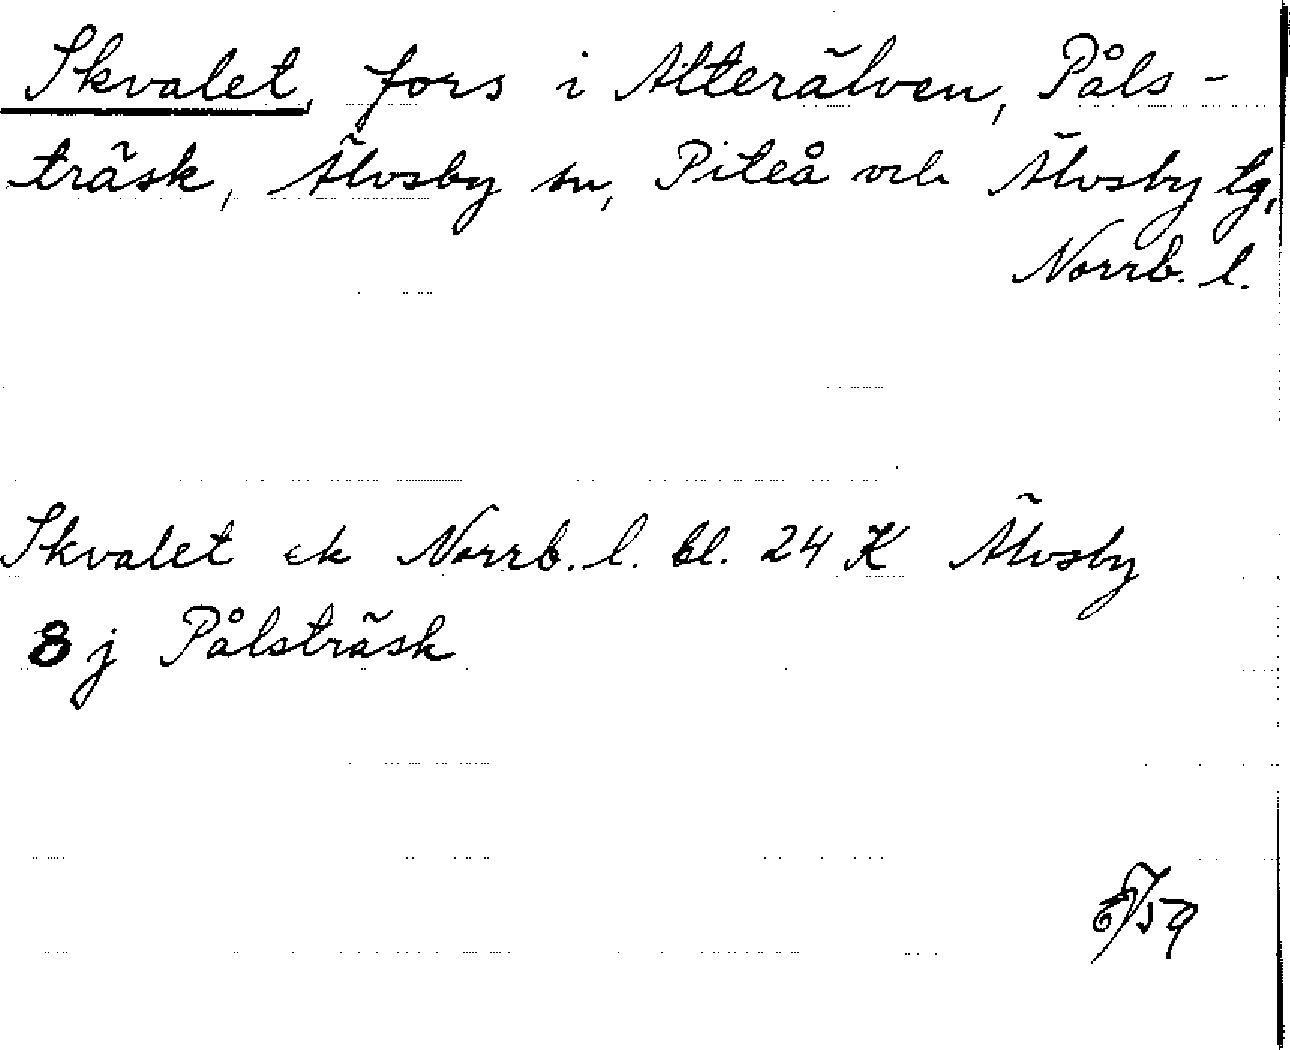 Skvalet, fors i Alterälven, Påls-
träsk, Älvsby sn, Piteå och Älvsby tg,
Norrb. l.
Skvalet ek Norrb. l. bl. 24 K Älvsby
8 j Pålsträsk